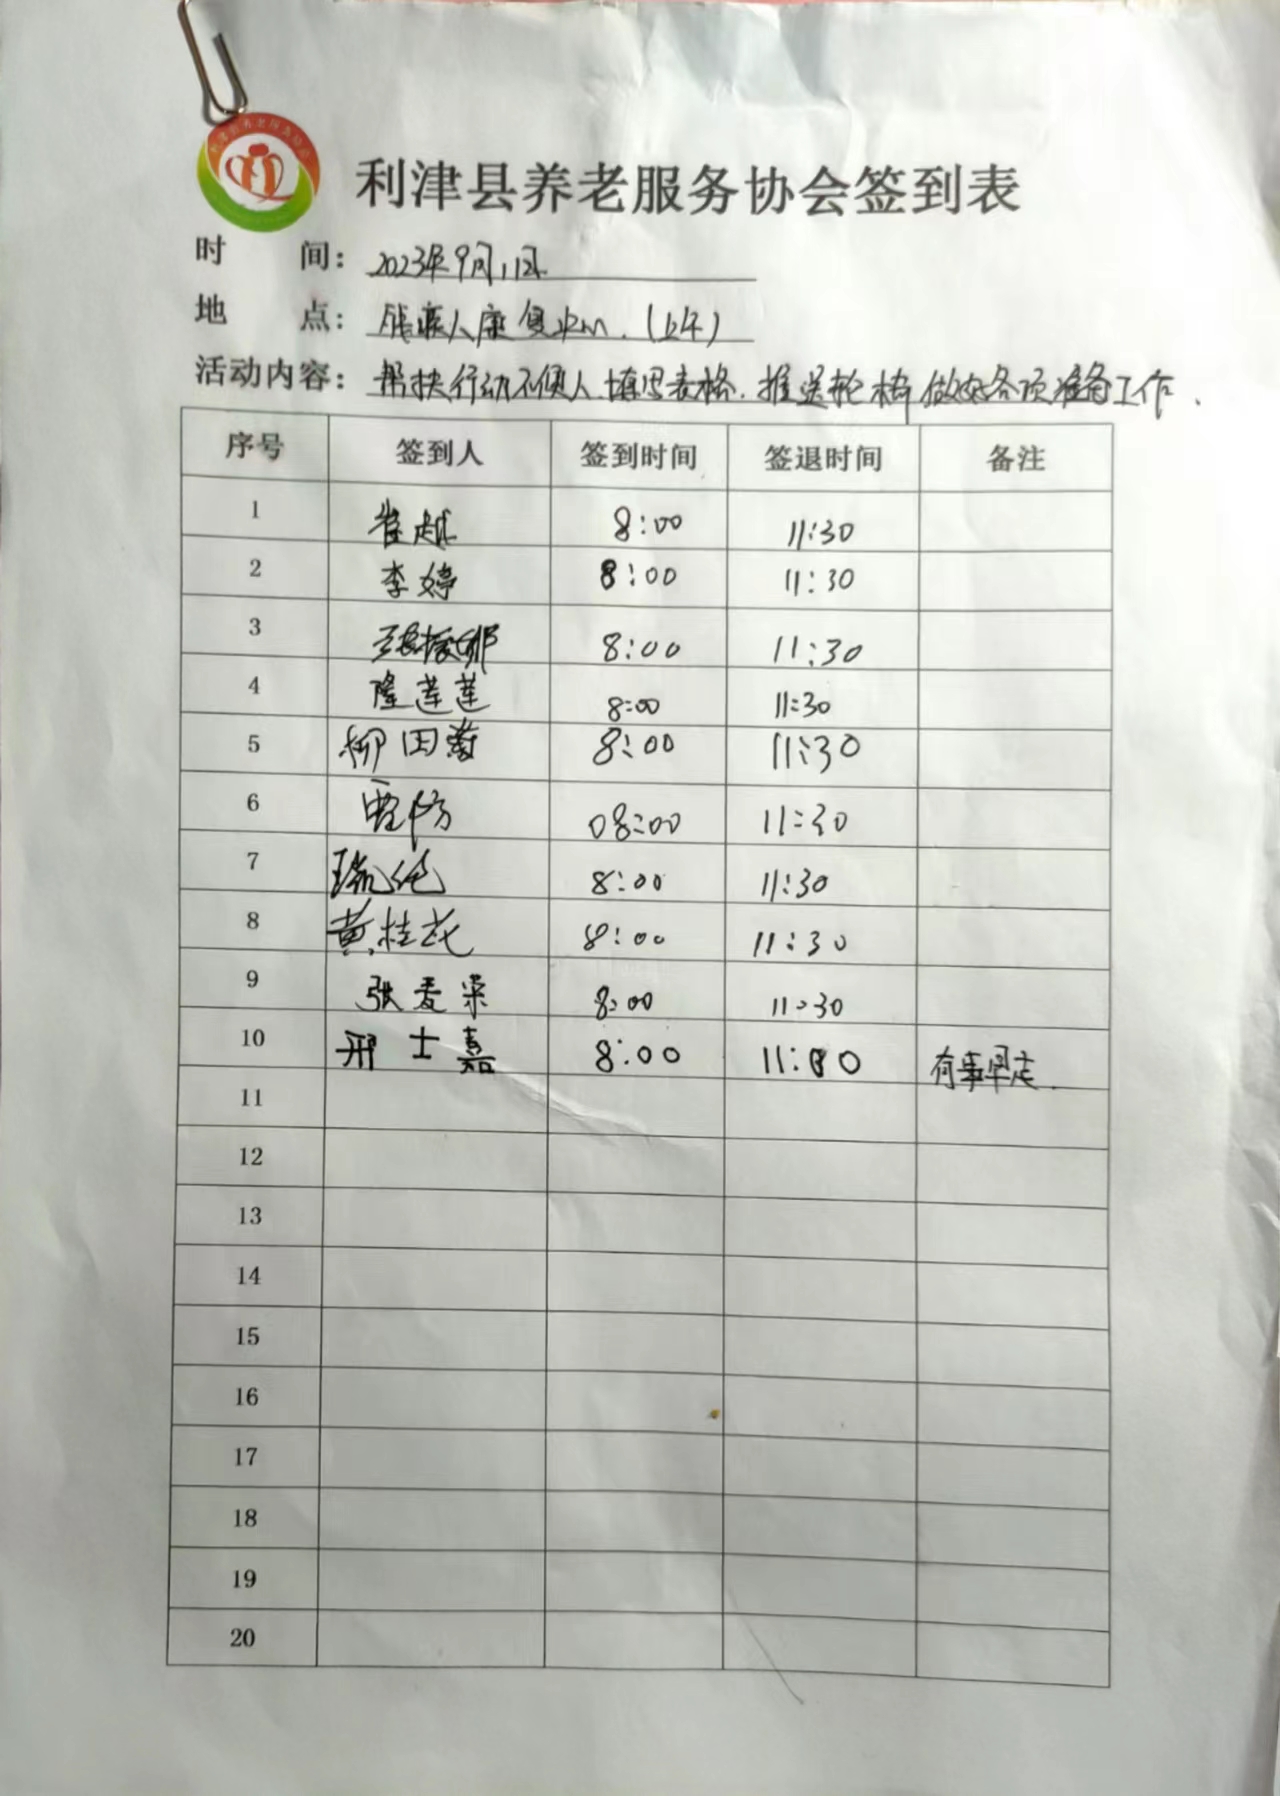 利津县养老服务协会签到表
时 间：2023年9月11日
地 点：残疾人康复中心.（上午）
活动内容：帮扶行动不便人.填写表格.推送轮椅做好各项准备工作.
序号 签到人 签到时间 签退时间 备注
1 崔越 8:00 11:30
2 李婷 8:00 11:30
3 8:00 11:30
4 隆莲莲 8:00 11:30
5 柳田 8:00 11:30
6 08:00 11:30
7 8:00 11:30
8 黄桂花 8:00 11:30
9 张麦 8:00 11:30
10 邢士嘉 8:00 11:00 有事早走.
11
12
13
14
15
16
17
18
19
20